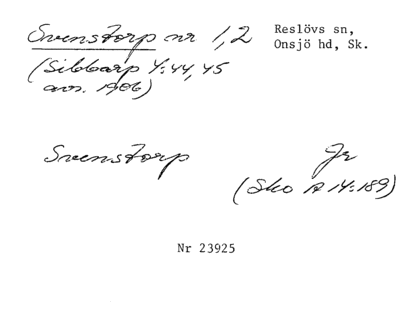 Svenstorp nr 1,2
Reslövs sn,
Onsjö hd, Sk.
(Sibbarp 4:44,45
avs. 1906)
Svenstorp
Jr
(Sko A 14:189)
Nr 23925